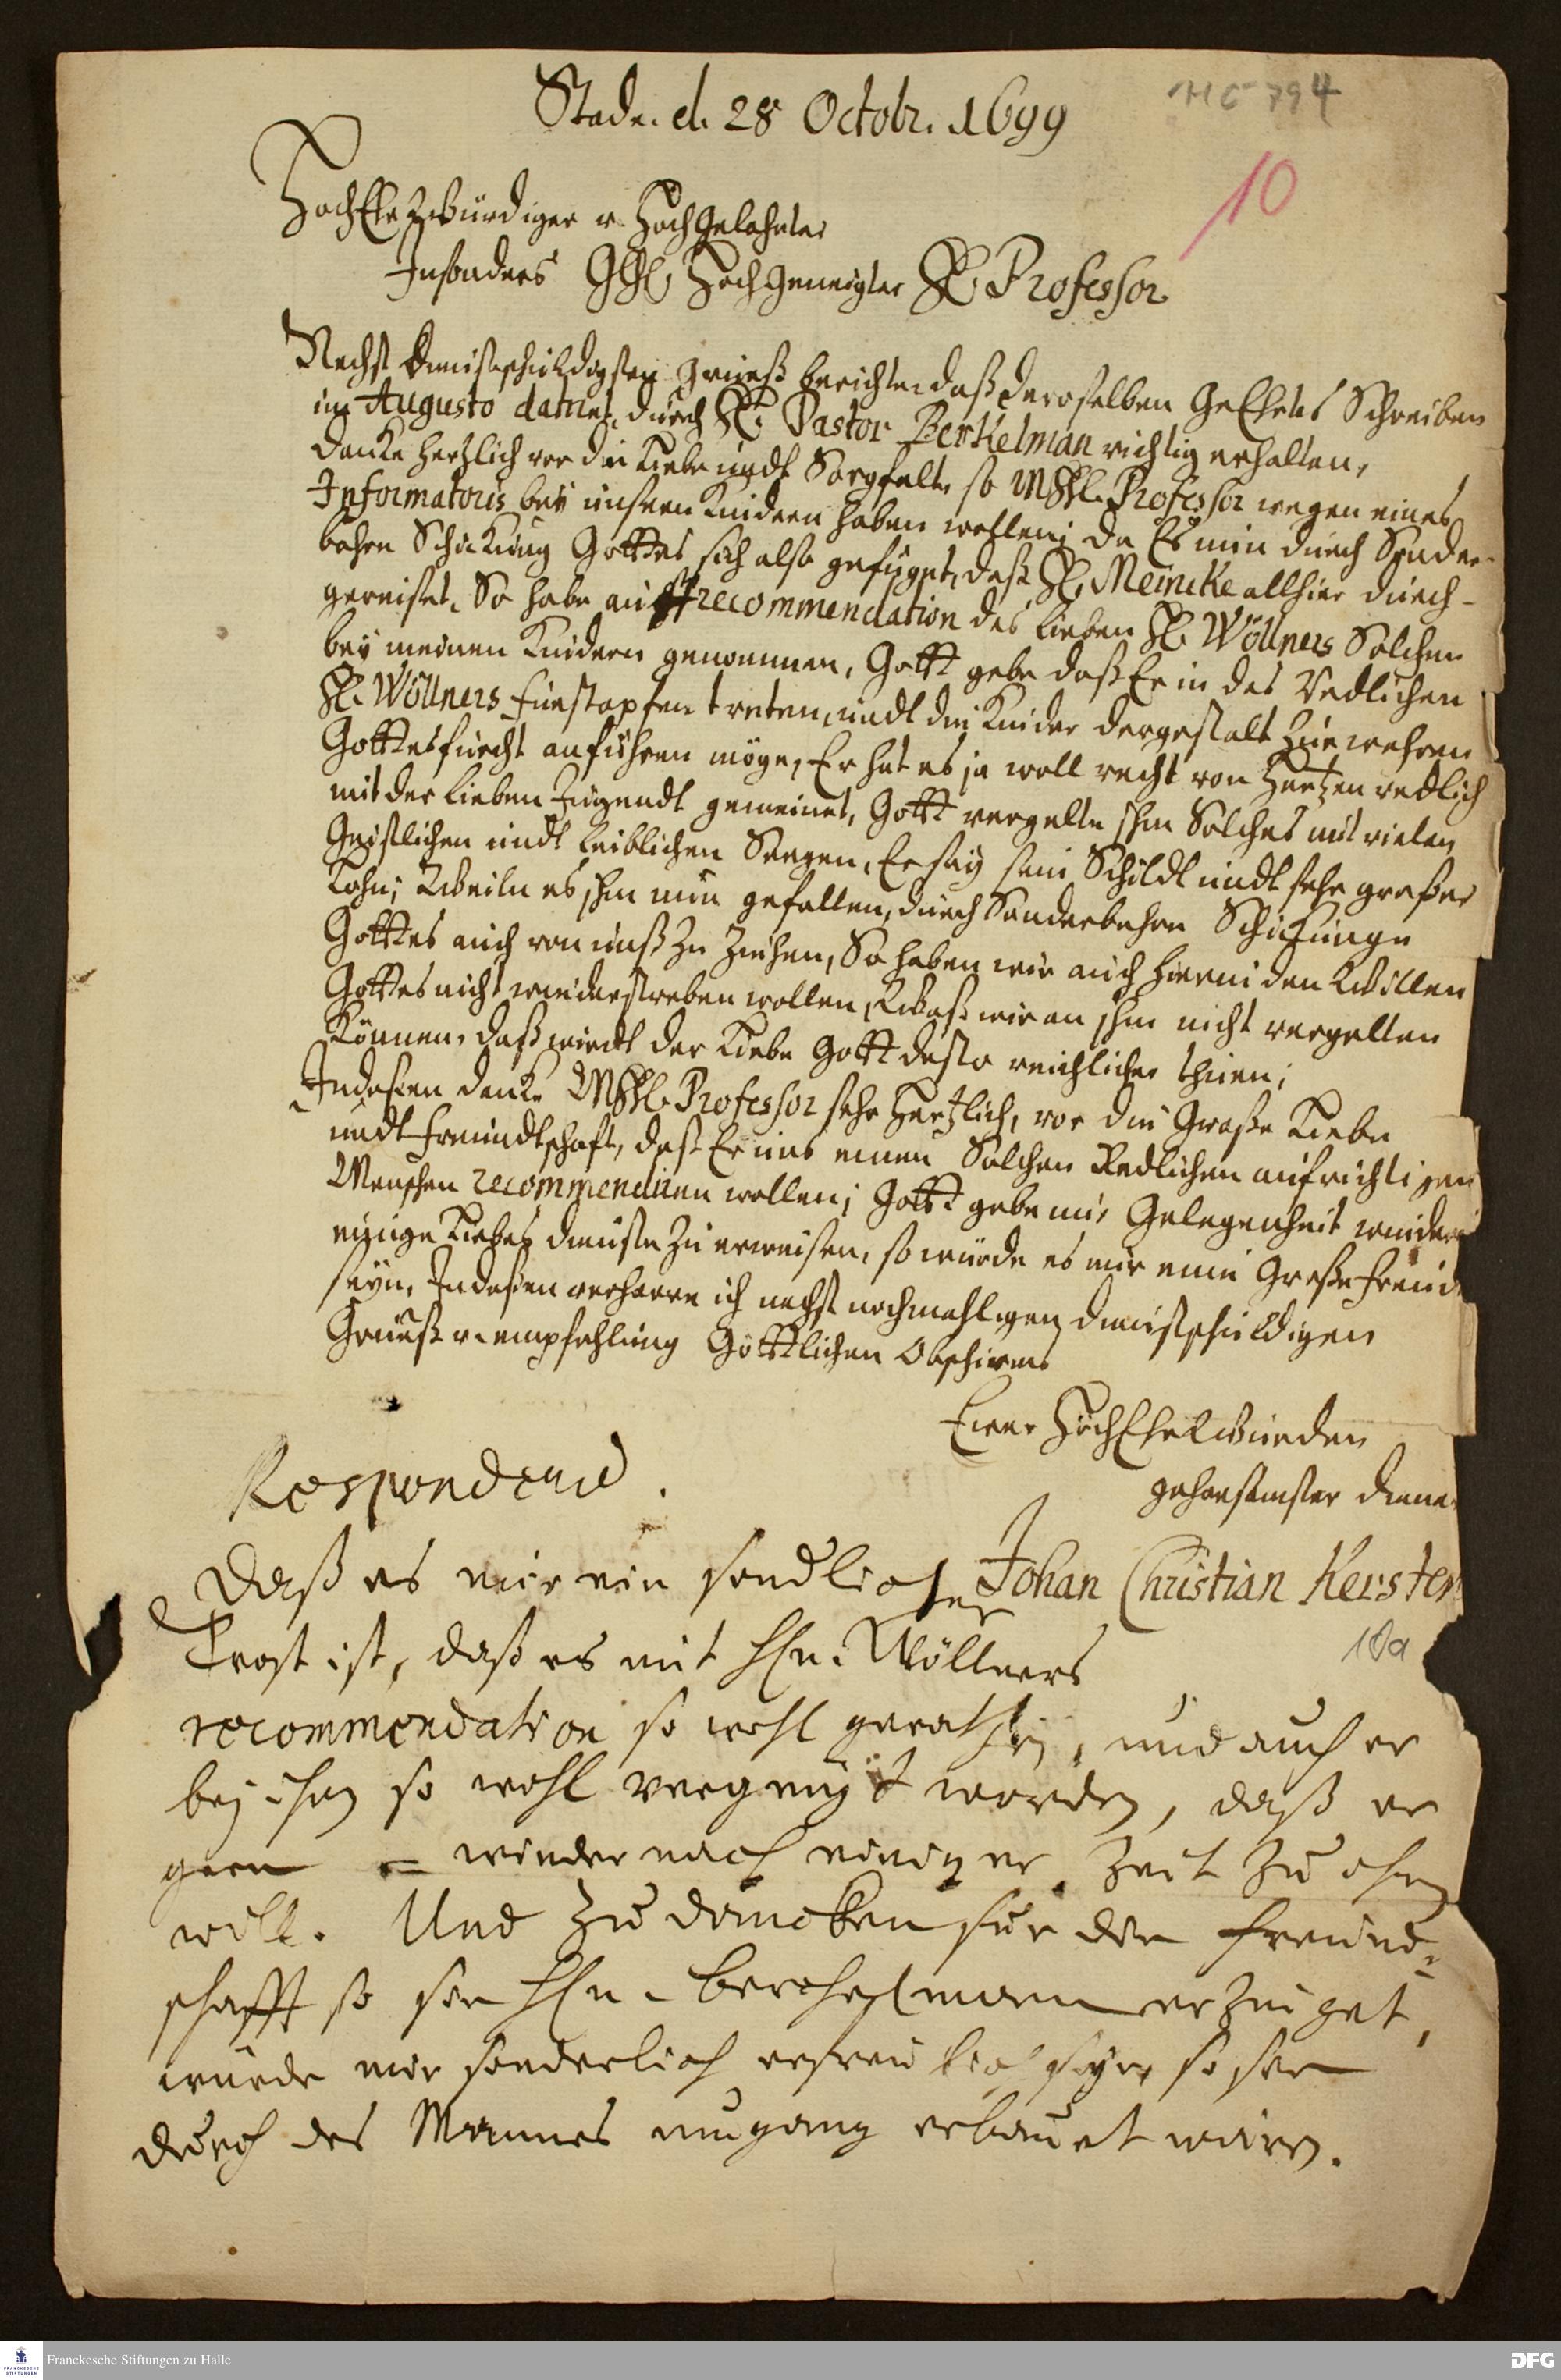 Stade. d. 28 Octobr. 1699
HC 794
10
HochEhrWürdiger u. HochGelahrter
Insonders HochGeneigter H. Professor
Nechst dienstschuldigsten grueß berichte daß deroselben GeEhrtes Schreiben
im Augusto datiret, durch H. Pastor Berkelman richtig erhalten,
dancke hertzlich vor die Liebe undt Sorgfalt, so MHl. Professor wegen eines
Informatoris bey unseren Kindern haben wollen; da Es nun durch Sonder-
bahre Schickung Gottes sich also gefüget, daß H. Meincke allhier durch-
gereiset, So habe auff recommendation des Lieben H. Wöllners Solchen
bey meinen Kindern genommen, Gott gebe daß Er in des Redlichen
H. Wöllners Fuestapfen treten, undt die Kinder dergestalt zur wahren
Gottesfurcht anführen möge, Er hat es ja woll recht von Hertzen redlich
mit der Lieben Jugendt gemeinet, Gott vergelte ihm Solches mit vielen
Geistlichen undt Leiblichen Seegen, Er sey sein Schildt undt sehr großer
Lohn; Weiln es ihm nun gefallen, durch Sonderbahre Schickunge
Gottes auch von unß zu ziehen, So haben wir auch hierin den Willen
Gottes nicht wiederstreben wollen, Waß wir an ihm nicht vergelten
Können, daß wirdt der Liebe Gott desto reichlicher thuen;
Indessen dancke MHl. Professor sehr Hertzlich, vor die Große Liebe
undt Freundtschaft, daß Er uns einen Solchen Redlichen aufrichtigen
Menschen recommendiren wollen; Gott gebe mir Gelegenheit wieder
einige Liebes dienste zu erweisen, so würde es mir eine Große Freud
seyn, Indessen verharre ich nechst nochmahligen dienstschuldigen
Grueß u. empfehlung Göttlichen Obschirms
Ewer HochEhrWürden
gehorsamster diener
Johan Christian Kersten
10a
Respondend.
Daß es mir ein sonderlicher
Trost ist, daß es mit Hn. Wöllners
recommendation so wohl gerathen, und auch er
bey ihnen so wohl vergnügt worden, daß er
gern wieder nach einiger Zeit zu ihnen
will. Und zu dancken für die Freund-
schafft so sie Hn. Berchelmann erzeiget,
würde mir sonderlich erfreulich seyn so sie
durch des Mannes umgang erbauet wären.
Franckesche Stiftungen zu Halle
FRANCKESCHE STIFTUNGEN
DFG